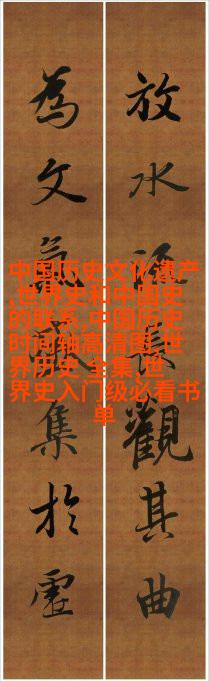 放水觀其曲
為文氣盛集於虛
中国历史文化遗产
,世界史和中国史
的联系,中国历史
时间轴高清图,世
界历史 全集,世
界史入门级必看书
单